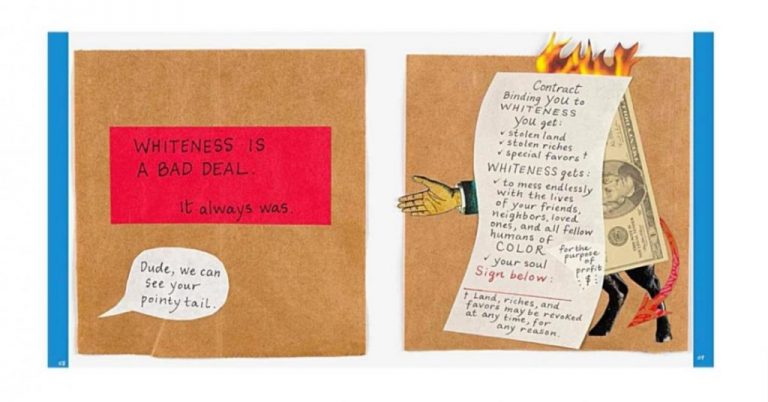 WHITENESS IS
A BAD DEAL.
It always was.
Dude, we can
see your
pointy tail.
Contract
Binding YOU to
WHITENESS
You get:
✓ stolen land
✓ stolen riches
✓ special favors †
WHITENESS gets:
✓ to mess endlessly
with the lives
of your friends,
neighbors, loved
ones, and all fellow
humans of
COLOR
for the
purpose
of
profit
$
✓ your soul
Sign below:
† Land, riches, and
favors may be revoked
at any time, for
any reason.